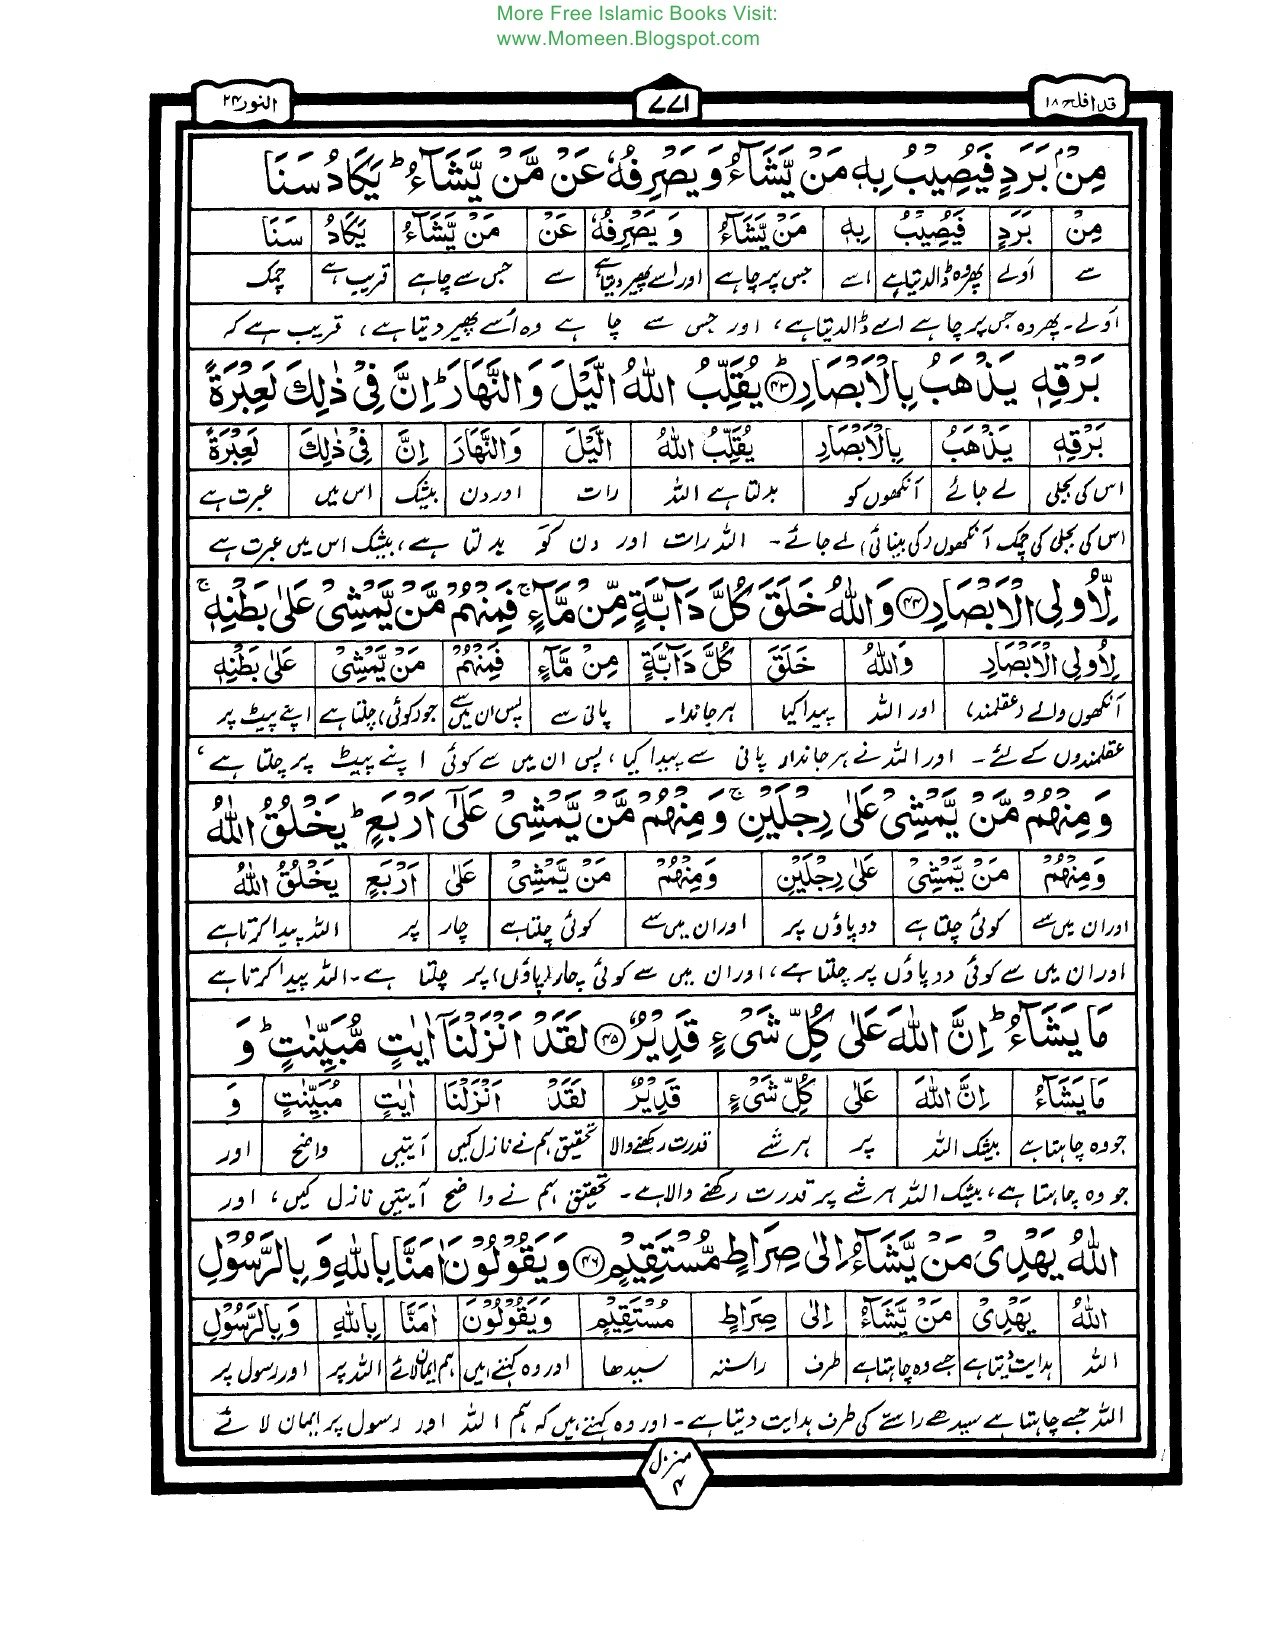 More Free Islamic Books Visit:
www.Momeen.Blogspot.com
قد افلح ۱۸
۷۷۱
النور ۲۴
مِنْۢ بَرَدٍ فَيُصِيْبُ بِهٖ مَنْ يَّشَآءُ وَ يَصْرِفُهٗ عَنْ مَّنْ يَّشَآءُ ؕ يَكَادُ سَنَا
مِنْ بَرَدٍ فَيُصِيْبُ بِهٖ مَنْ يَّشَآءُ وَ يَصْرِفُهٗ عَنْ مَنْ يَّشَآءُ يَكَادُ سَنَا
سے اَولے پھر وہ ڈالدیتا ہے اسے جس پر چاہے اور اسے پھیر دیتا ہے سے جس سے چاہے قریب ہے چمک
اَولے۔ پھر وہ جس پر چاہے اسے ڈالدیتا ہے، اور جس سے چاہے وہ اُسے پھیر دیتا ہے، قریب ہے کہ
بَرْقِهٖ يَذْهَبُ بِالْاَبْصَارِ ؕ۴۳ يُقَلِّبُ اللّٰهُ الَّيْلَ وَالنَّهَارَ ؕ اِنَّ فِيْ ذٰلِكَ لَعِبْرَةً
بَرْقِهٖ يَذْهَبُ بِالْاَبْصَارِ يُقَلِّبُ اللّٰهُ الَّيْلَ وَالنَّهَارَ اِنَّ فِيْ ذٰلِكَ لَعِبْرَةً
اس کی بجلی لے جائے آنکھوں کو بدلتا ہے اللہ رات اور دن بیشک اس میں عبرت ہے
اس کی بجلی کی چمک آنکھوں (کی بینائی) لے جائے۔ اللہ رات اور دن کو بدلتا ہے، بیشک اس میں عبرت ہے
لِّاُولِي الْاَبْصَارِ ۴۴ وَاللّٰهُ خَلَقَ كُلَّ دَآبَّةٍ مِّنْ مَّآءٍ ۚ فَمِنْهُمْ مَّنْ يَّمْشِيْ عَلٰى بَطْنِهٖ ۚ
لِاُولِي الْاَبْصَارِ وَاللّٰهُ خَلَقَ كُلَّ دَآبَّةٍ مِنْ مَّآءٍ فَمِنْهُمْ مَنْ يَّمْشِيْ عَلٰى بَطْنِهٖ
آنکھوں والے (عقلمند) اور اللہ پیدا کیا ہر جاندار۔ پانی سے پس ان میں سے جو (کوئی) چلتا ہے اپنے پیٹ پر
عقلمندوں کے لئے۔ اور اللہ نے ہر جاندار پانی سے پیدا کیا، پس ان میں سے کوئی اپنے پیٹ پر چلتا ہے،
وَمِنْهُمْ مَّنْ يَّمْشِيْ عَلٰى رِجْلَيْنِ ۚ وَمِنْهُمْ مَّنْ يَّمْشِيْ عَلٰٓى اَرْبَعٍ ؕ يَخْلُقُ اللّٰهُ
وَمِنْهُمْ مَنْ يَّمْشِيْ عَلٰى رِجْلَيْنِ وَمِنْهُمْ مَنْ يَّمْشِيْ عَلٰى اَرْبَعٍ يَخْلُقُ اللّٰهُ
اور ان میں سے کوئی چلتا ہے دو پاؤں پر اور ان میں سے کوئی چلتا ہے چار پر اللہ پیدا کرتا ہے
اور ان میں سے کوئی دو پاؤں پر چلتا ہے، اور ان میں سے کوئی چار (پاؤں) پر چلتا ہے۔ اللہ پیدا کرتا ہے
مَا يَشَآءُ ؕ اِنَّ اللّٰهَ عَلٰى كُلِّ شَيْءٍ قَدِيْرٌ ۴۵ لَقَدْ اَنْزَلْنَآ اٰيٰتٍ مُّبَيِّنٰتٍ ؕ وَ
مَا يَشَآءُ اِنَّ اللّٰهَ عَلٰى كُلِّ شَيْءٍ قَدِيْرٌ لَقَدْ اَنْزَلْنَا اٰيٰتٍ مُبَيِّنٰتٍ وَ
جو وہ چاہتا ہے بیشک اللہ پر ہر شے قدرت رکھنے والا تحقیق ہم نے نازل کیں آیتیں واضح اور
جو وہ چاہتا ہے، بیشک اللہ ہر شے پر قدرت رکھنے والا ہے۔ تحقیق ہم نے واضح آیتیں نازل کیں، اور
اللّٰهُ يَهْدِيْ مَنْ يَّشَآءُ اِلٰى صِرَاطٍ مُّسْتَقِيْمٍ ۴۶ وَيَقُوْلُوْنَ اٰمَنَّا بِاللّٰهِ وَ بِالرَّسُوْلِ
اللّٰهُ يَهْدِيْ مَنْ يَّشَآءُ اِلٰى صِرَاطٍ مُسْتَقِيْمٍ وَيَقُوْلُوْنَ اٰمَنَّا بِاللّٰهِ وَبِالرَّسُوْلِ
اللہ ہدایت دیتا ہے جسے وہ چاہتا ہے طرف راستہ سیدھا اور وہ کہتے ہیں ہم ایمان لائے اللہ پر اور رسول پر
اللہ جسے چاہتا ہے سیدھے راستے کی طرف ہدایت دیتا ہے۔ اور وہ کہتے ہیں کہ ہم اللہ اور رسول پر ایمان لائے
منزل
۴